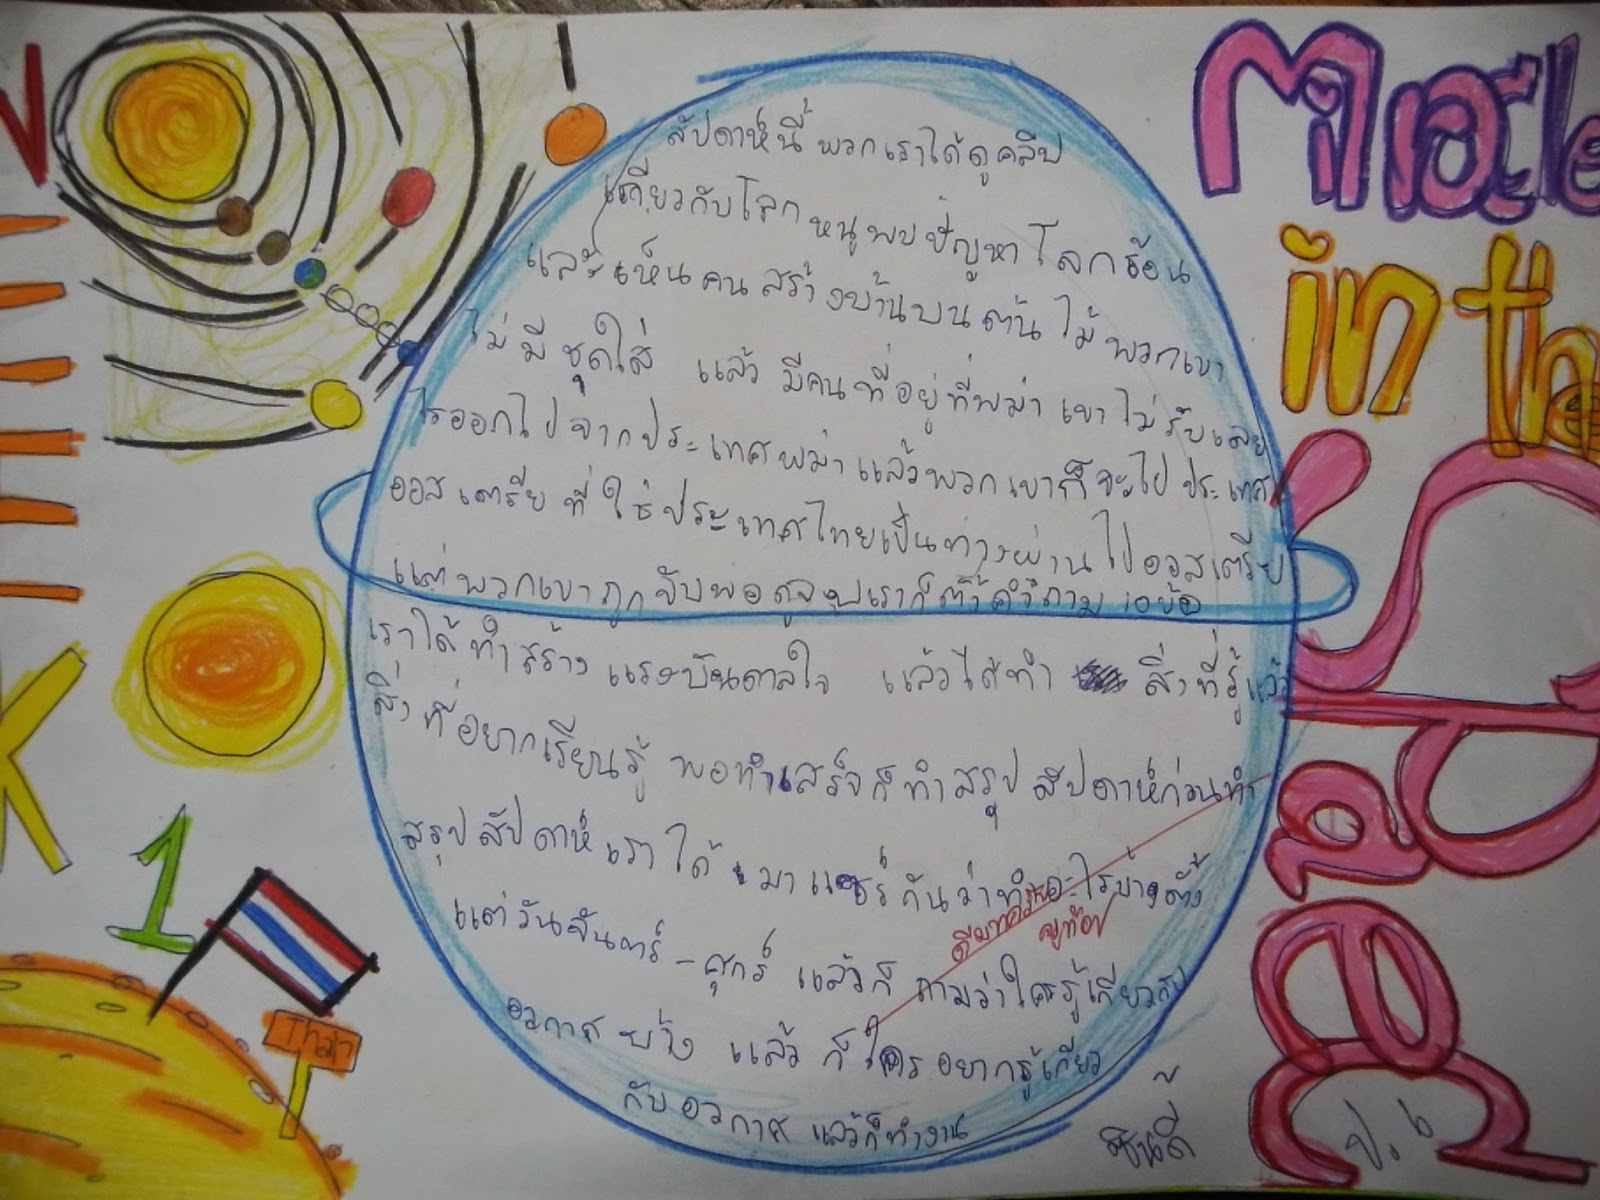 WEEK 1
Miracle
in the
Space
สัปดาห์นี้พวกเราได้ดูคลิป
เกี่ยวกับโลก หนูพบปัญหาโลกร้อน
และเห็นคนสร้างบ้านบนต้นไม้ พวกเขา
ไม่มีชุดใส่ แล้วมีคนที่อยู่ที่พม่า เขาไม่รับเลย
ไรออกไปจากประเทศพม่าแล้วพวกเขาก็จะไปประเทศ
ออสเตรียที่ใช้ประเทศไทยเป็นทางผ่านไปออสเตรีย
แต่พวกเขาถูกจับพอดูจบเราก็ตั้งคำถาม
เราได้ทำสร้างแรงบันดาลใจ แล้วได้ทำ สิ่งที่รู้แล้ว
สิ่งที่อยากเรียนรู้ พอทำเสร็จก็ทำสรุปสัปดาห์ก่อนทำ
สรุปสัปดาห์เราได้มาแชร์กันว่าทำอะไรบ้างตั้ง
แต่วันจันทร์-ศุกร์ แล้วก็ถามว่าใครรู้เกี่ยวกับ
อวกาศบ้าง แล้วก็ใครอยากรู้เกี่ยว
กับอวกาศ แล้วก็ทำงาน
Thai
ชินดี้
ป.6